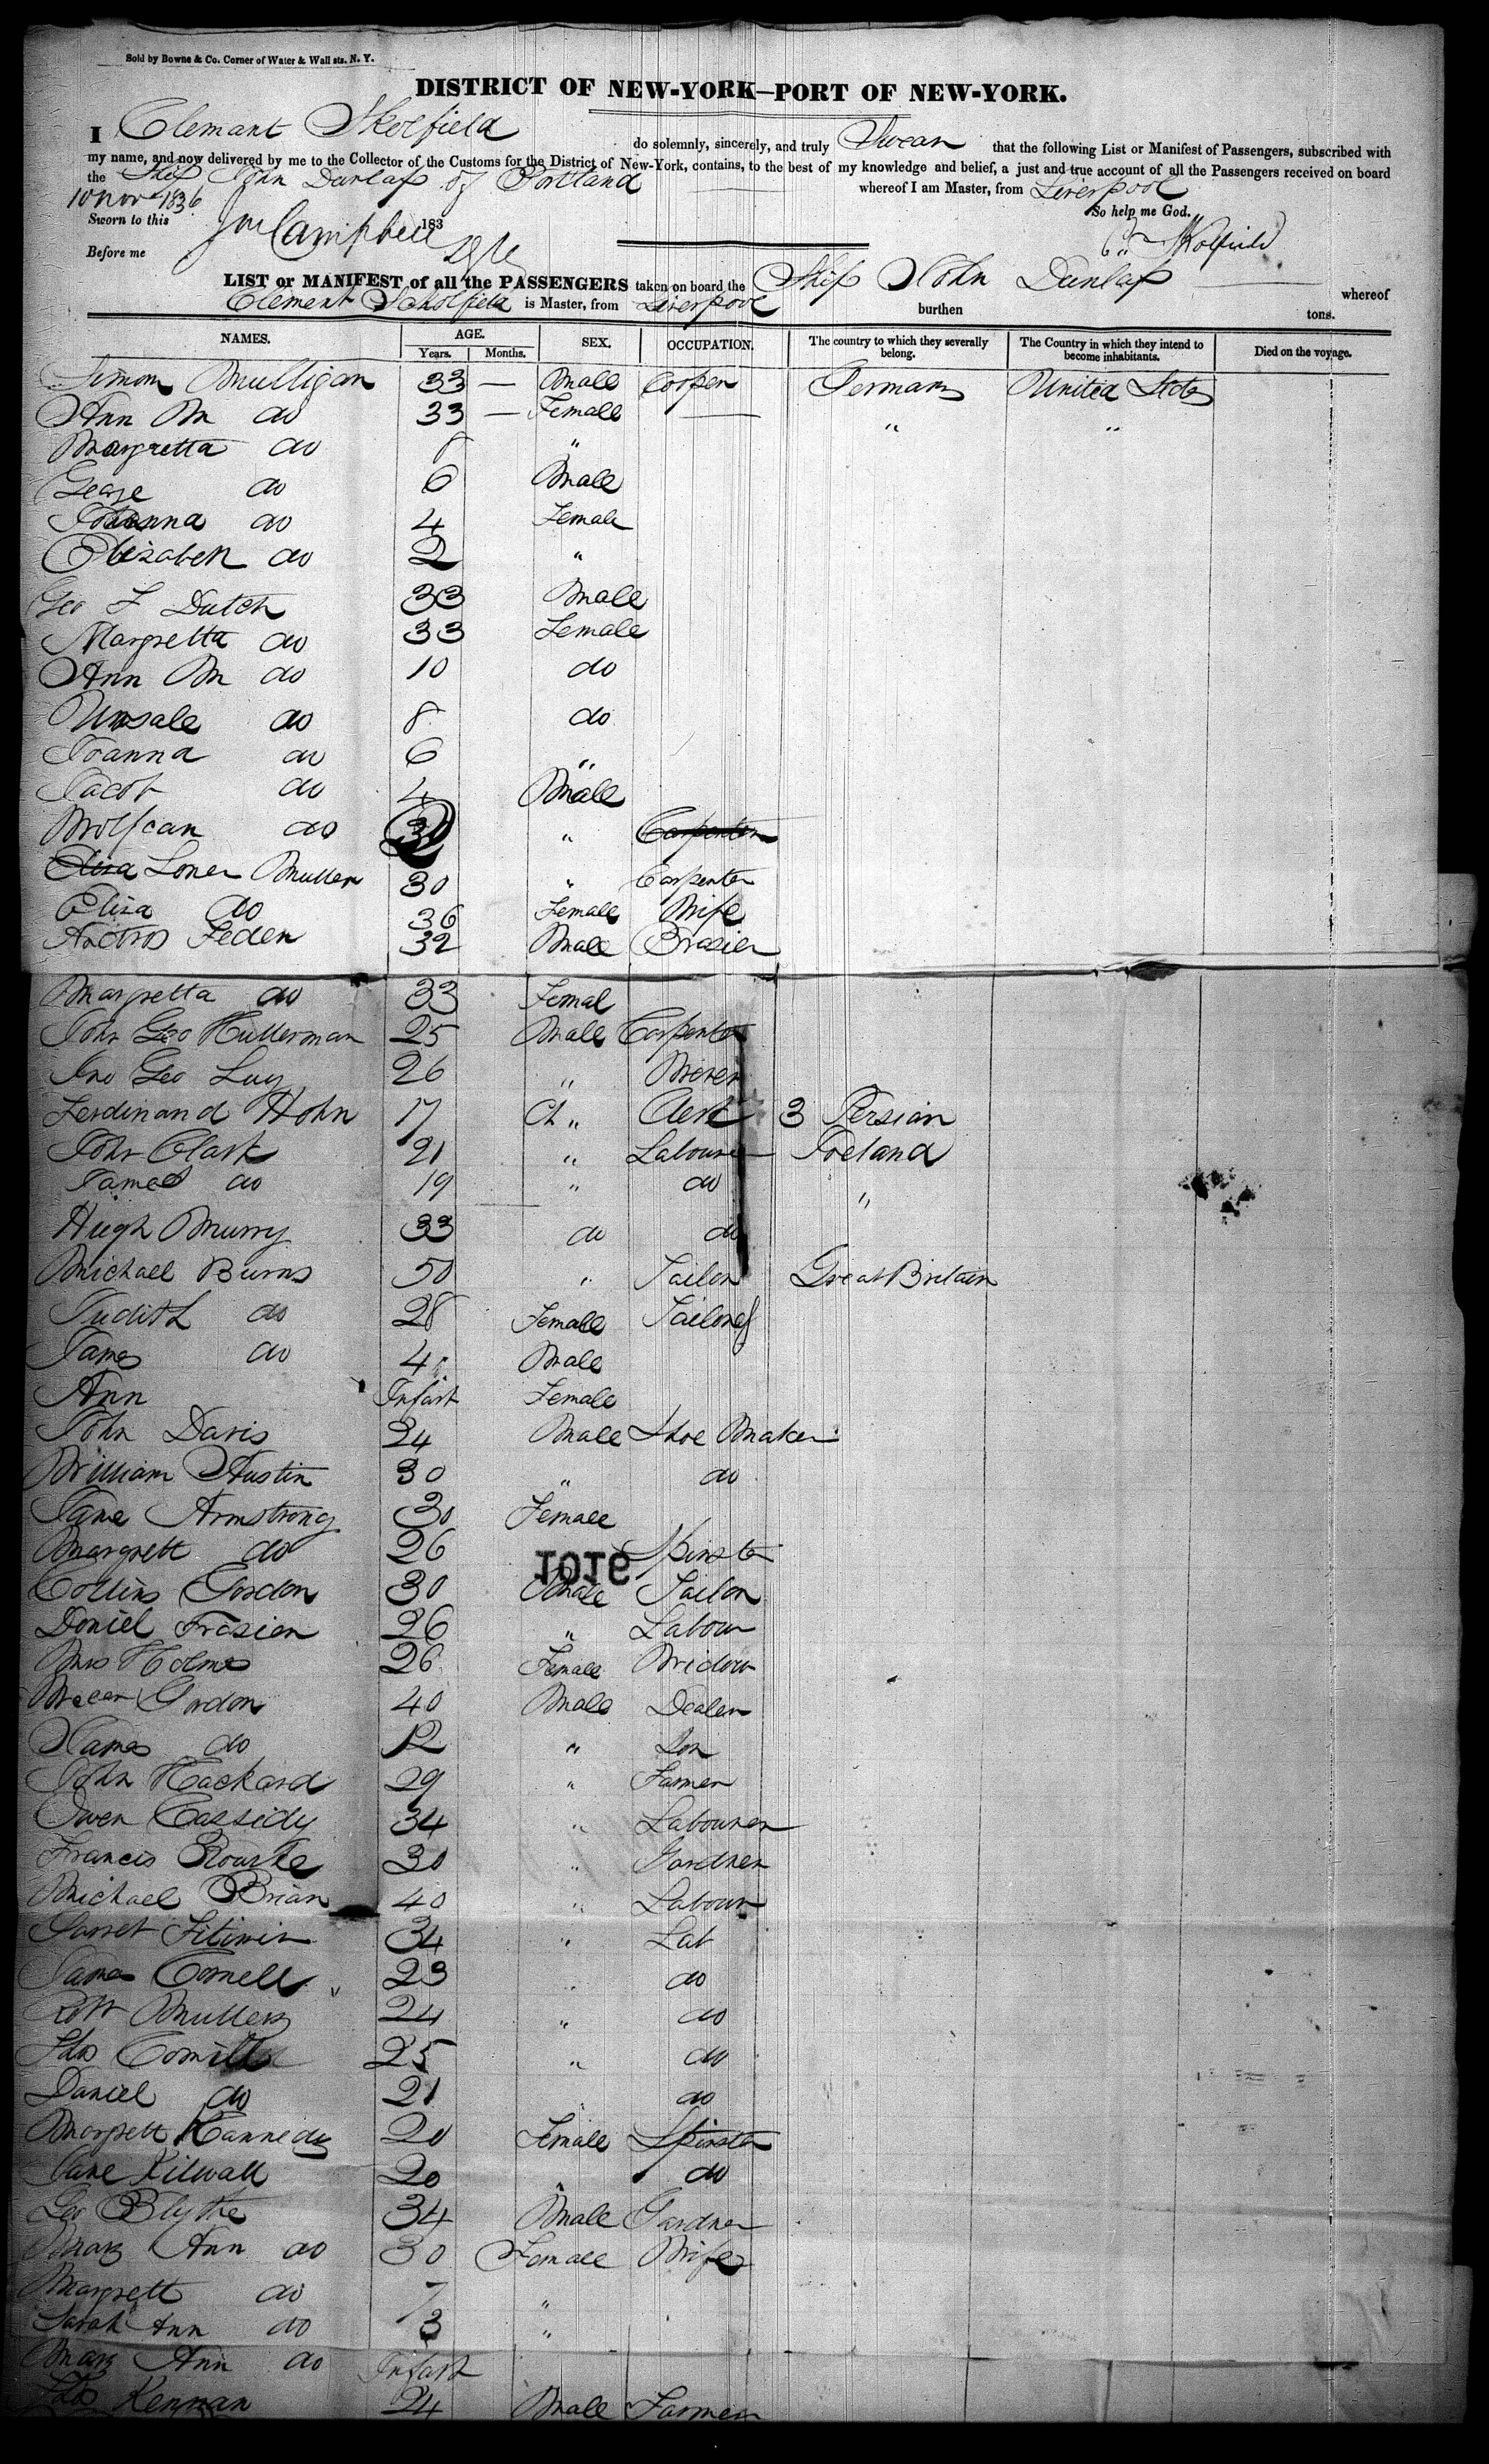 Sold by Bowne & Co. Corner of Water & Wall sts. N. Y.
DISTRICT OF NEW-YORK—PORT OF NEW-YORK.
I Clemant Skolfield do solemnly, sincerely, and truly Swear that the following List or Manifest of Passengers, subscribed with
my name, and now delivered by me to the Collector of the Customs for the District of New-York, contains, to the best of my knowledge and belief, a just and true account of all the Passengers received on board
the Ship John Dunlap of Portland whereof I am Master, from Liverpool
10 Nov 1836 So help me God.
Sworn to this 183
Jm Campbell Skolfield
Before me
LIST or MANIFEST of all the PASSENGERS taken on board the Ship John Dunlap whereof
Clement Scholfield is Master, from Liverpool burthen tons.
NAMES. AGE. SEX. OCCUPATION. The country to which they severally belong. The Country in which they intend to become inhabitants. Died on the voyage.
Years. Months.
Simon Mulligan 33 — Male Cooper Germany United States
Ann M do 33 — Female — " "
Margretta do 8 "
George do 6 Male
Johanna do 4 Female
Elizabeth do 2 "
Geo F Dutch 33 Male
Margretta do 33 Female
Ann M do 10 do
do 8 do
Joanna do 6 "
Jacob do 4 Male
Wolfcan do " Carpenter
Eliza Loner Muller 30 " Carpenter
Eliza do 36 Female Wife
Feden 32 Male Brasier
Margretta do 33 Femal
John Geo Hullerman 25 Male Carpenter
Jno Geo Luy 26 "
Ferdinand Hohn 17 " Clerk 3 Persian
John Clark 21 " Labourer Ireland
James do 19 " do "
Hugh Murry 33 do do
Michael Burns 50 " Tailor Great Britain
Judith do 28 Female
James do 4 Male
Ann Infant Female
John Davis 24 Male Shoe Maker
William Austin 30 " do
Jane Armstrong 30 Female
Margrett do 26 Spinster
Collins Gordon 30 Male Tailor
Daniel Frasier 26 " Labour
Mrs Holmes 26 Female Widow
Gordon 40 Male Dealer
James do 12 " Son
John Hackard 29 " Farmer
Owen Cassidy 34 " Labourer
Francis Rourke 30 " Gardner
Michael Brian 40 " Labour
Garret 34 " Lab
James Connell 23 " do
Robt Muller 24 " do
Thos 25 " do
Daniel do 21 do
Margrett Kannedy 20 Female Spinster
Jane Kilwall 20 " do
Geo Blythe 34 Male Gardner
Mary Ann do 30 Female Wife
Margrett do 7 "
Sarah Ann do 3 "
Mary Ann do Infant
Thos Kennan 24 Male Farmer